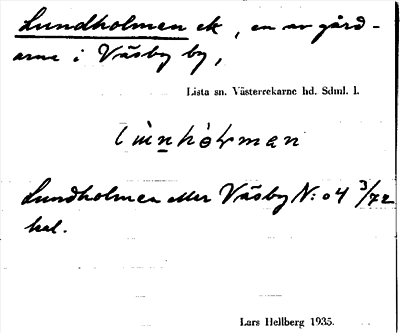 Lundholmen ek, en av gård-
arne i Väsby by,
Lista sn. Västerrekarne hd. Sdml. l.
Lundholmen eller Väsby N:o 4 3/72
hel.
Lars Hellberg 1935.